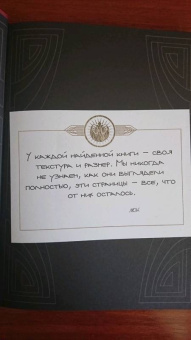 У каждой найденной книги – своя
текстура и размер. Мы никогда
не узнаем, как они выглядели
полностью, эти страницы – все, что
от них осталось.